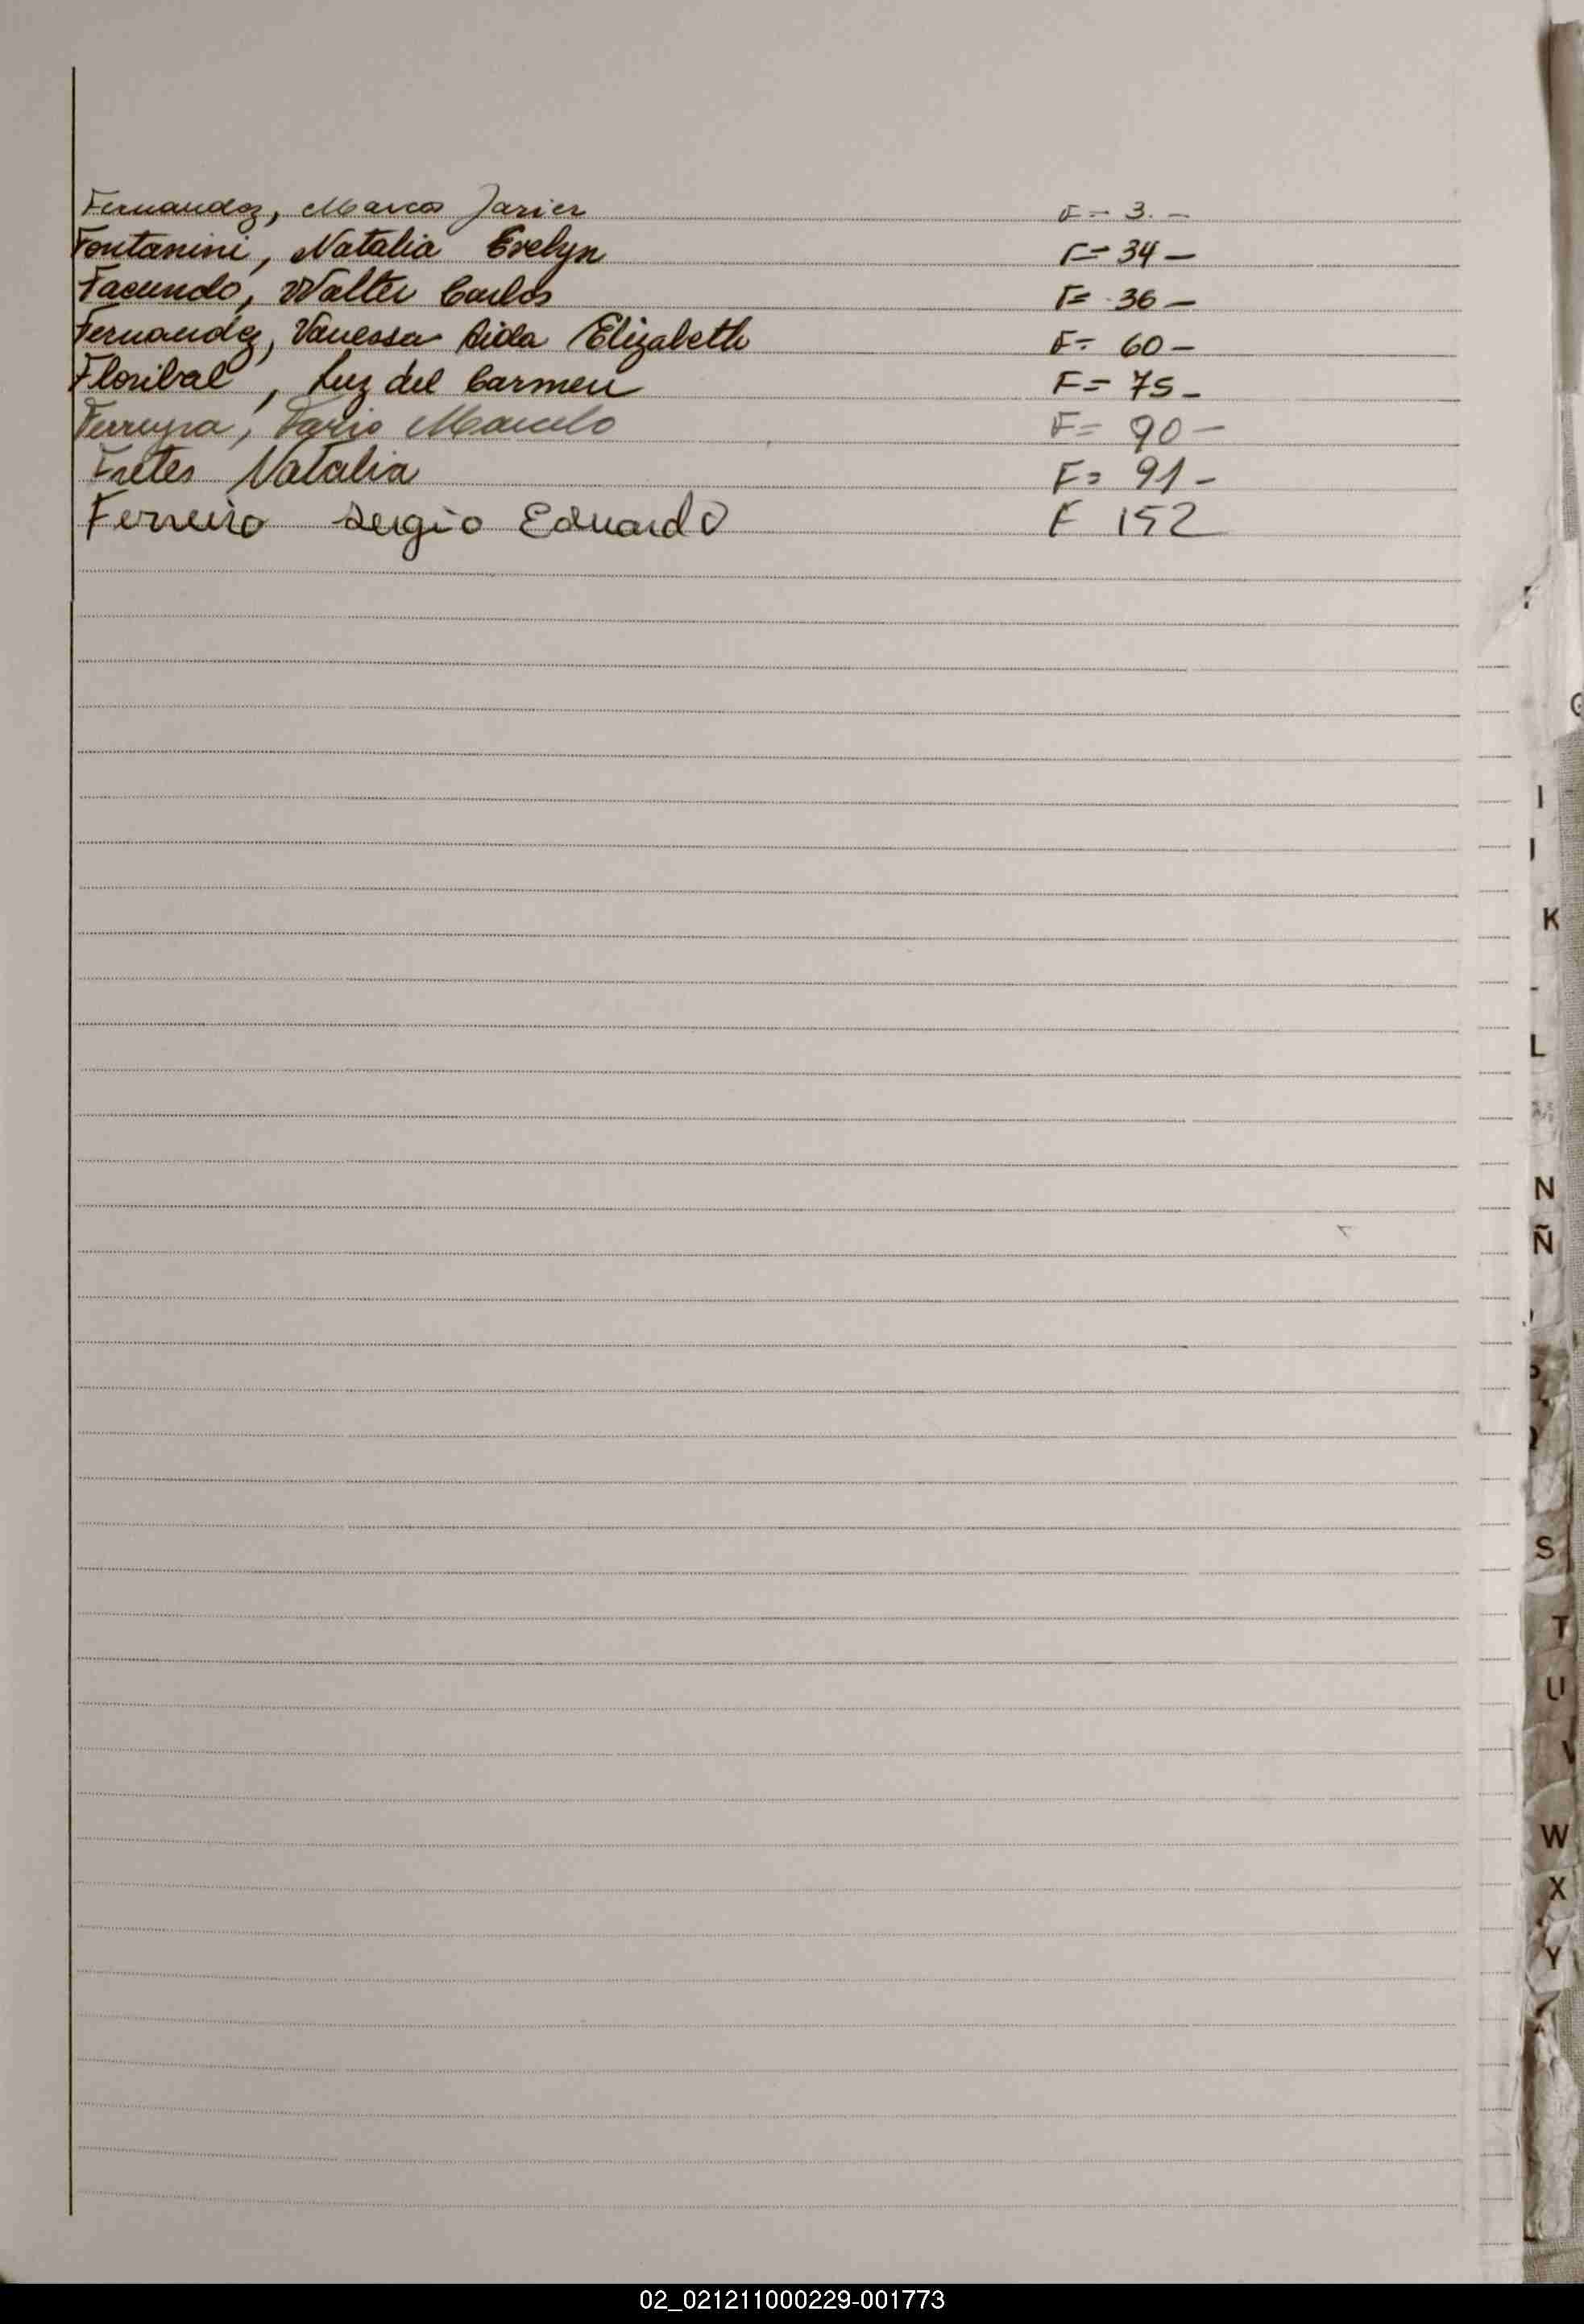 Fernandez, Marcos Javier F= 3.-
Fontanini, Natalia Evelyn F= 34-
Facundo, Walter Carlos F= 36-
Fernandez, Vanessa Aida Elizabeth F= 60-
Floribal, Luz del Carmen F= 75-
Ferreyra, Dario Marcelo F= 90-
Fretes Natalia F= 91-
Ferreiro Sergio Eduardo F 152
K
L
M
N
Ñ
S
T
U
W
X
Y
02_021211000229-001773